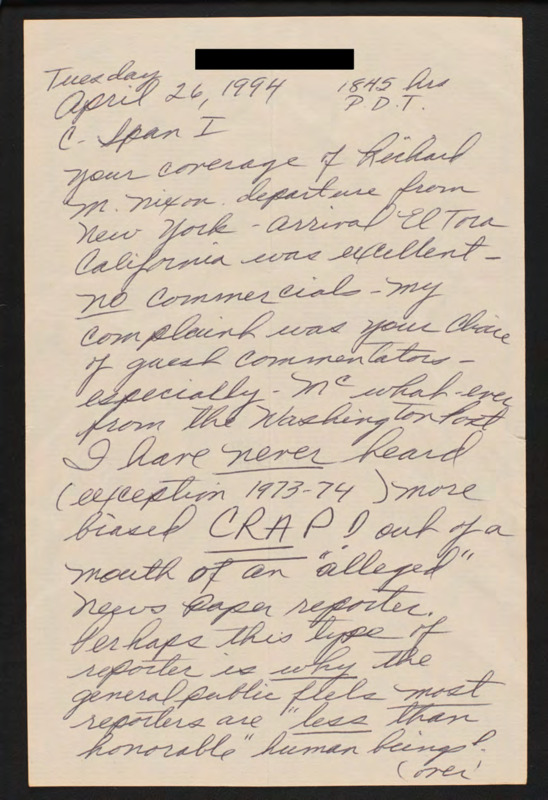 Tuesday
April 26, 1994 1845 hrs
P.D.T.
C-Span I
your coverage of Richard
M. Nixon departure from
New York - arrival El Tora
California was excellent -
no commercials - my
complaint was your choice
of guest commentators -
especially - Mc what-ever
from the Washington Post
I have never heard
(exception 1973-74) more
biased CRAP out of a
mouth of an "alleged"
news paper reporter.
Perhaps this type of
reporter is why the
general public feels most
reporters are "less than
honorable" human beings!
(over